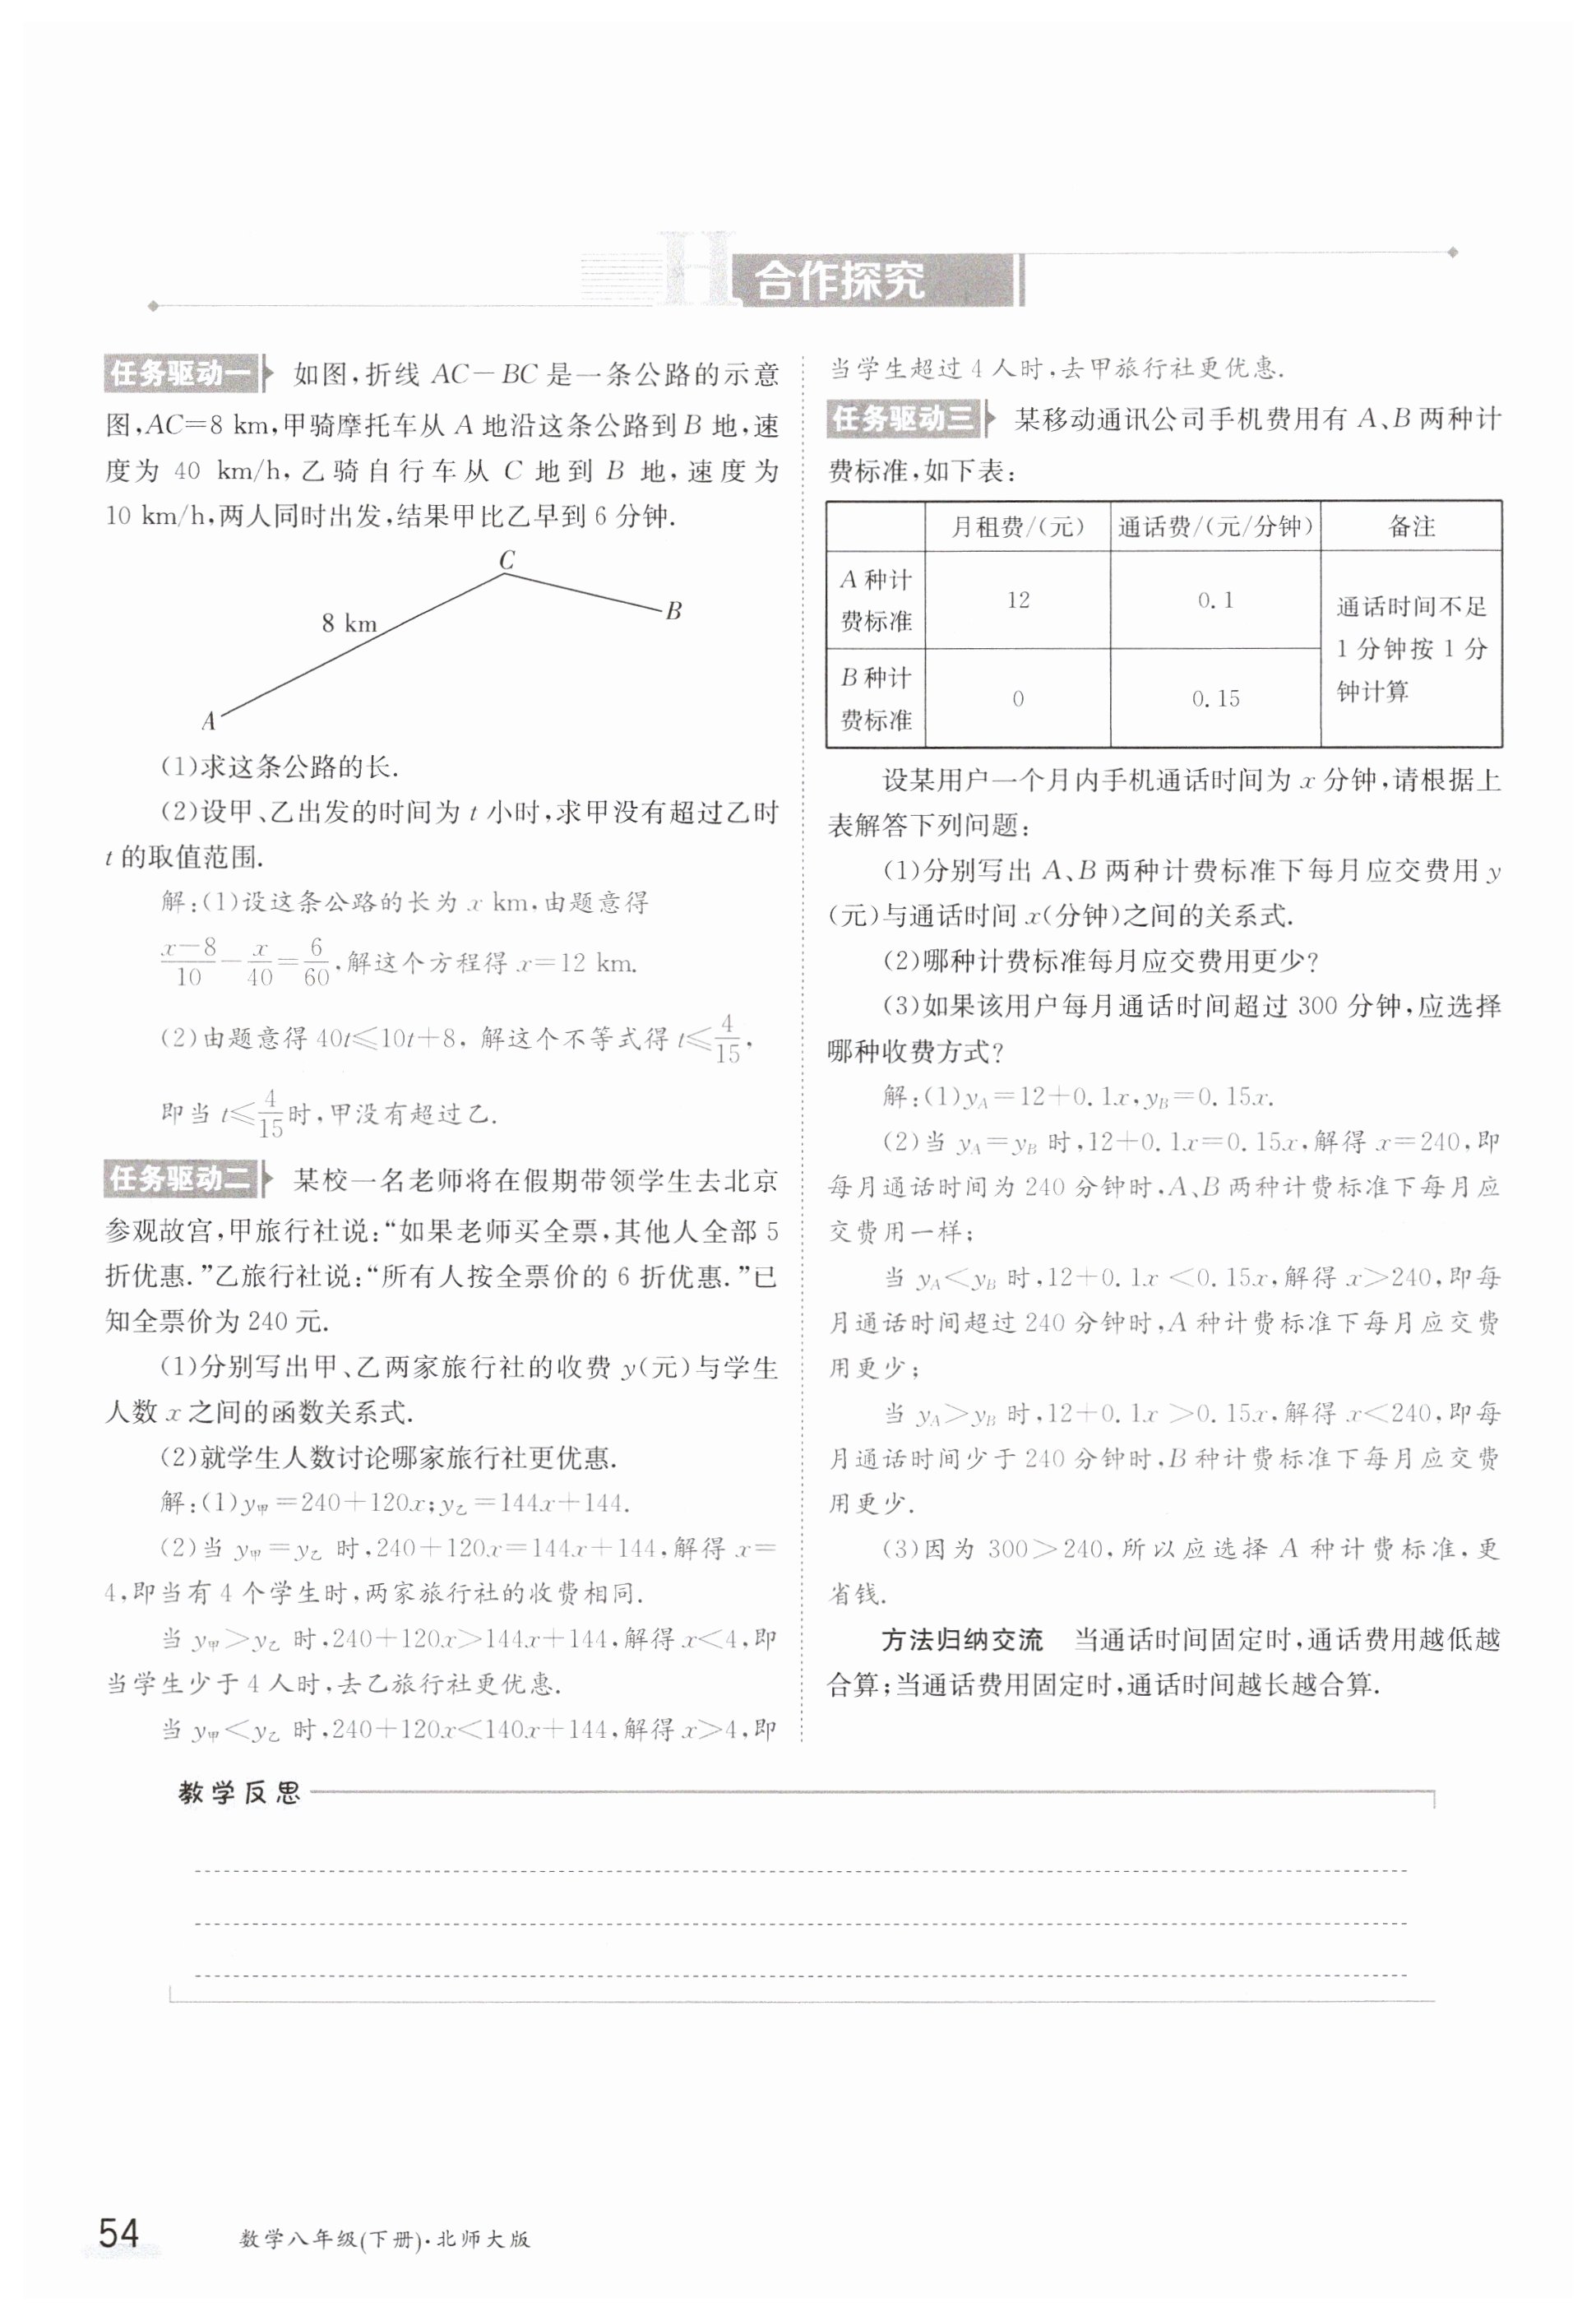 合作探究
任务驱动一 如图,折线 AC－BC 是一条公路的示意
图,AC=8 km,甲骑摩托车从 A 地沿这条公路到 B 地,速
度为 40 km/h,乙骑自行车从 C 地到 B 地,速度为
10 km/h,两人同时出发,结果甲比乙早到 6 分钟.
C
B
8 km
A
(1)求这条公路的长.
(2)设甲、乙出发的时间为 t 小时,求甲没有超过乙时
t 的取值范围.
解:(1)设这条公路的长为 x km,由题意得
(x－8)/10－x/40=6/60,解这个方程得 x=12 km.
(2)由题意得 40t≤10t+8, 解这个不等式得 t≤4/15,
即当 t≤4/15时,甲没有超过乙.
任务驱动二 某校一名老师将在假期带领学生去北京
参观故宫,甲旅行社说:“如果老师买全票,其他人全部 5
折优惠.”乙旅行社说:“所有人按全票价的 6 折优惠.”已
知全票价为 240 元.
(1)分别写出甲、乙两家旅行社的收费 y(元)与学生
人数 x 之间的函数关系式.
(2)就学生人数讨论哪家旅行社更优惠.
解:(1)y甲=240+120x;y乙=144x+144.
(2)当 y甲=y乙 时,240+120x=144x+144,解得 x=
4,即当有 4 个学生时,两家旅行社的收费相同.
当 y甲>y乙 时,240+120x>144x+144,解得 x<4,即
当学生少于 4 人时,去乙旅行社更优惠.
当 y甲<y乙 时,240+120x<140x+144,解得 x>4,即
当学生超过 4 人时,去甲旅行社更优惠.
任务驱动三 某移动通讯公司手机费用有 A、B 两种计
费标准,如下表:
月租费/(元) 通话费/(元/分钟) 备注
A 种计
费标准
12 0.1
B 种计
费标准
0 0.15
通话时间不足
1 分钟按 1 分
钟计算
设某用户一个月内手机通话时间为 x 分钟,请根据上
表解答下列问题:
(1)分别写出 A、B 两种计费标准下每月应交费用 y
(元)与通话时间 x(分钟)之间的关系式.
(2)哪种计费标准每月应交费用更少?
(3)如果该用户每月通话时间超过 300 分钟,应选择
哪种收费方式?
解:(1)yA=12+0.1x,yB=0.15x.
(2)当 yA=yB 时,12+0.1x=0.15x,解得 x=240,即
每月通话时间为 240 分钟时,A、B 两种计费标准下每月应
交费用一样;
当 yA<yB 时,12+0.1x <0.15x,解得 x>240,即每
月通话时间超过 240 分钟时,A 种计费标准下每月应交费
用更少;
当 yA>yB 时,12+0.1x >0.15x,解得 x<240,即每
月通话时间少于 240 分钟时,B 种计费标准下每月应交费
用更少.
(3)因为 300>240,所以应选择 A 种计费标准,更
省钱.
方法归纳交流 当通话时间固定时,通话费用越低越
合算;当通话费用固定时,通话时间越长越合算.
教学反思
54
数学八年级(下册)·北师大版